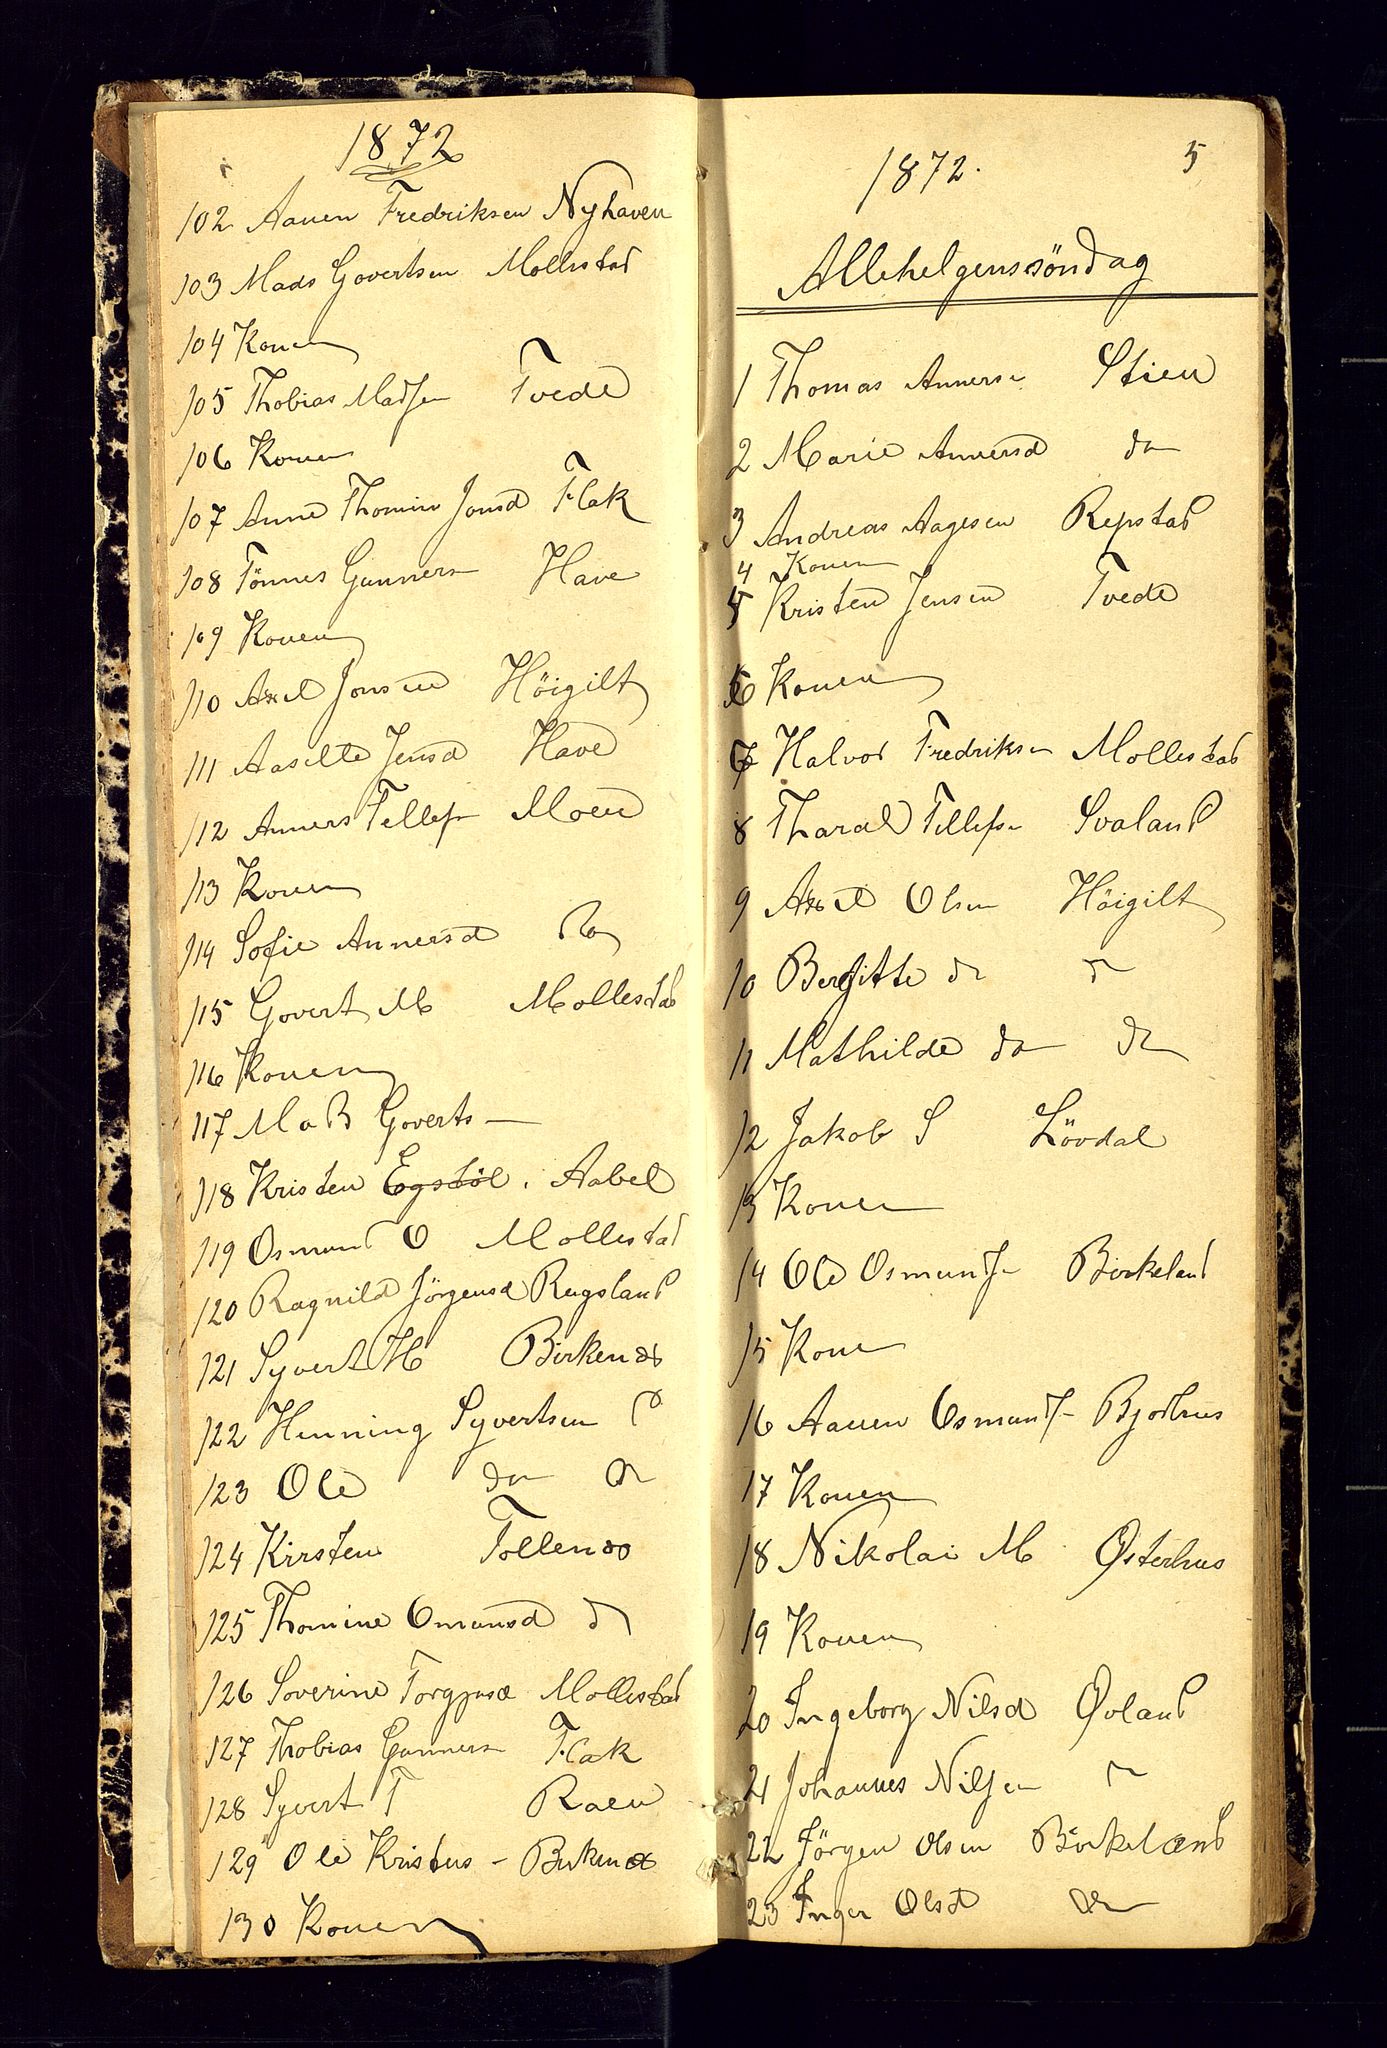 1872
102 Aanen Fredriksen Nyhaven
103 Mads Govertsen Mollestad
104 Konen
105 Thobias Madsen Tvede
106 Konen
107 Anne Thomine Jonsd Flak
108 Tönnes Gunners Have
109 Konen
110 Axel Jonsen Höigilt
111 Aaselte Jensd Have
112 Anners Tellefs Moen
113 Konen
114 Sofie Annersd do
115 Govert M Mollestad
116 Konen
117 Mads Goverts –
118 Kristen Egstøl. Aabel
119 Osmund O Mollestad
120 Ragnild Jörgensd Rugsland
121 Syvert H Birkenæs
122 Henning Syvertsen d
123 Ole do do
124 Kirsten Tollenæs
125 Thomine Omunsd do
126 Soverine Torgjusd Mollestad
127 Thobias Gunners Flak
128 Syvert T Raen
129 Ole Kristens – Birkenæs
130 Konen
1872. 5
Allehelgenssöndag
1 Thomas Anners Stien
2 Marie Annersd do
3 Andreas Aagesen Repstad
4 Konen
5 Kristen Jensen Tvede
6 Konen
7 Halvor Fredriksen Mollestad
8 Tharald Tellefsen Svaland
9 Axel Olsen Höigilt
10 Bergitte do do
11 Mathilde do do
12 Jakob S Lövdal
13 Konen
14 Ole Osmunds Birkeland
15 Konen
16 Aanen Osmunds Bjorhus
17 Konen
18 Nikolai M Østerhus
19 Konen
20 Ingeborg Nilsd Øvland
21 Johannes Nilsen do
22 Jörgen Olsen Birkeland
23 Inger Olsd do